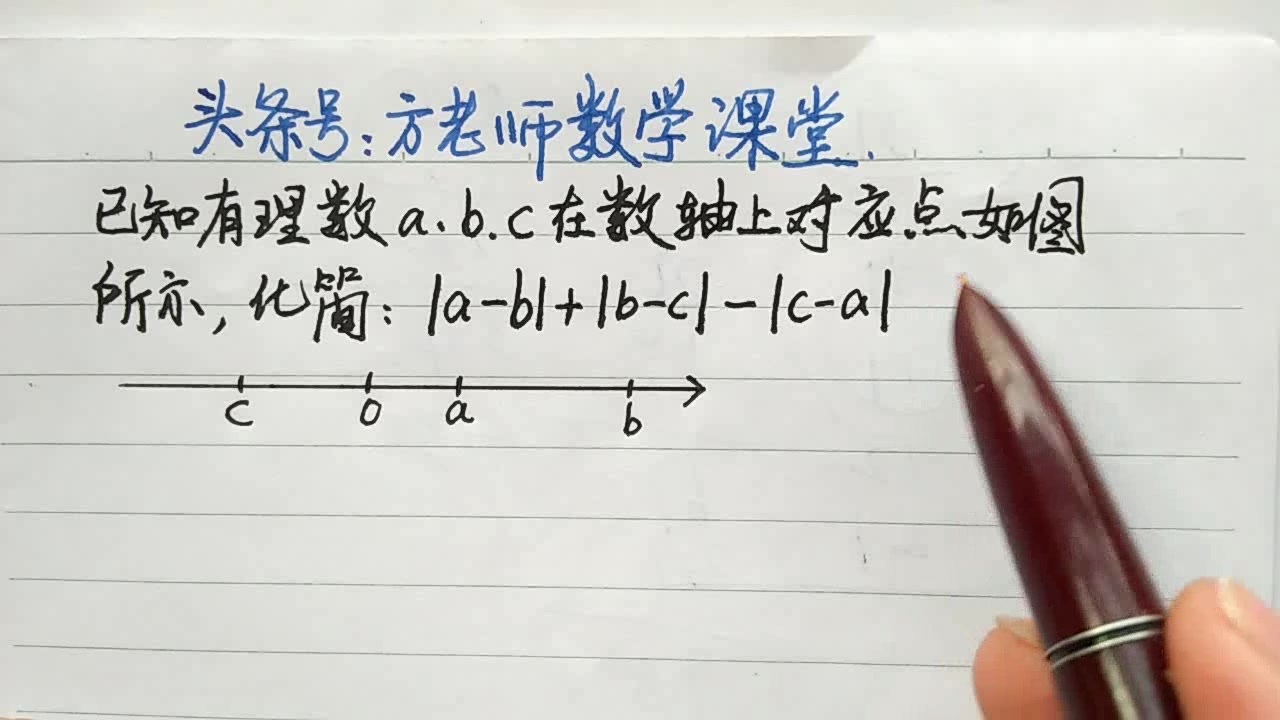 头条号:方老师数学课堂.
已知有理数a.b.c在数轴上对应点如图
所示,化简:|a-b|+|b-c|-|c-a|
c 0 a b